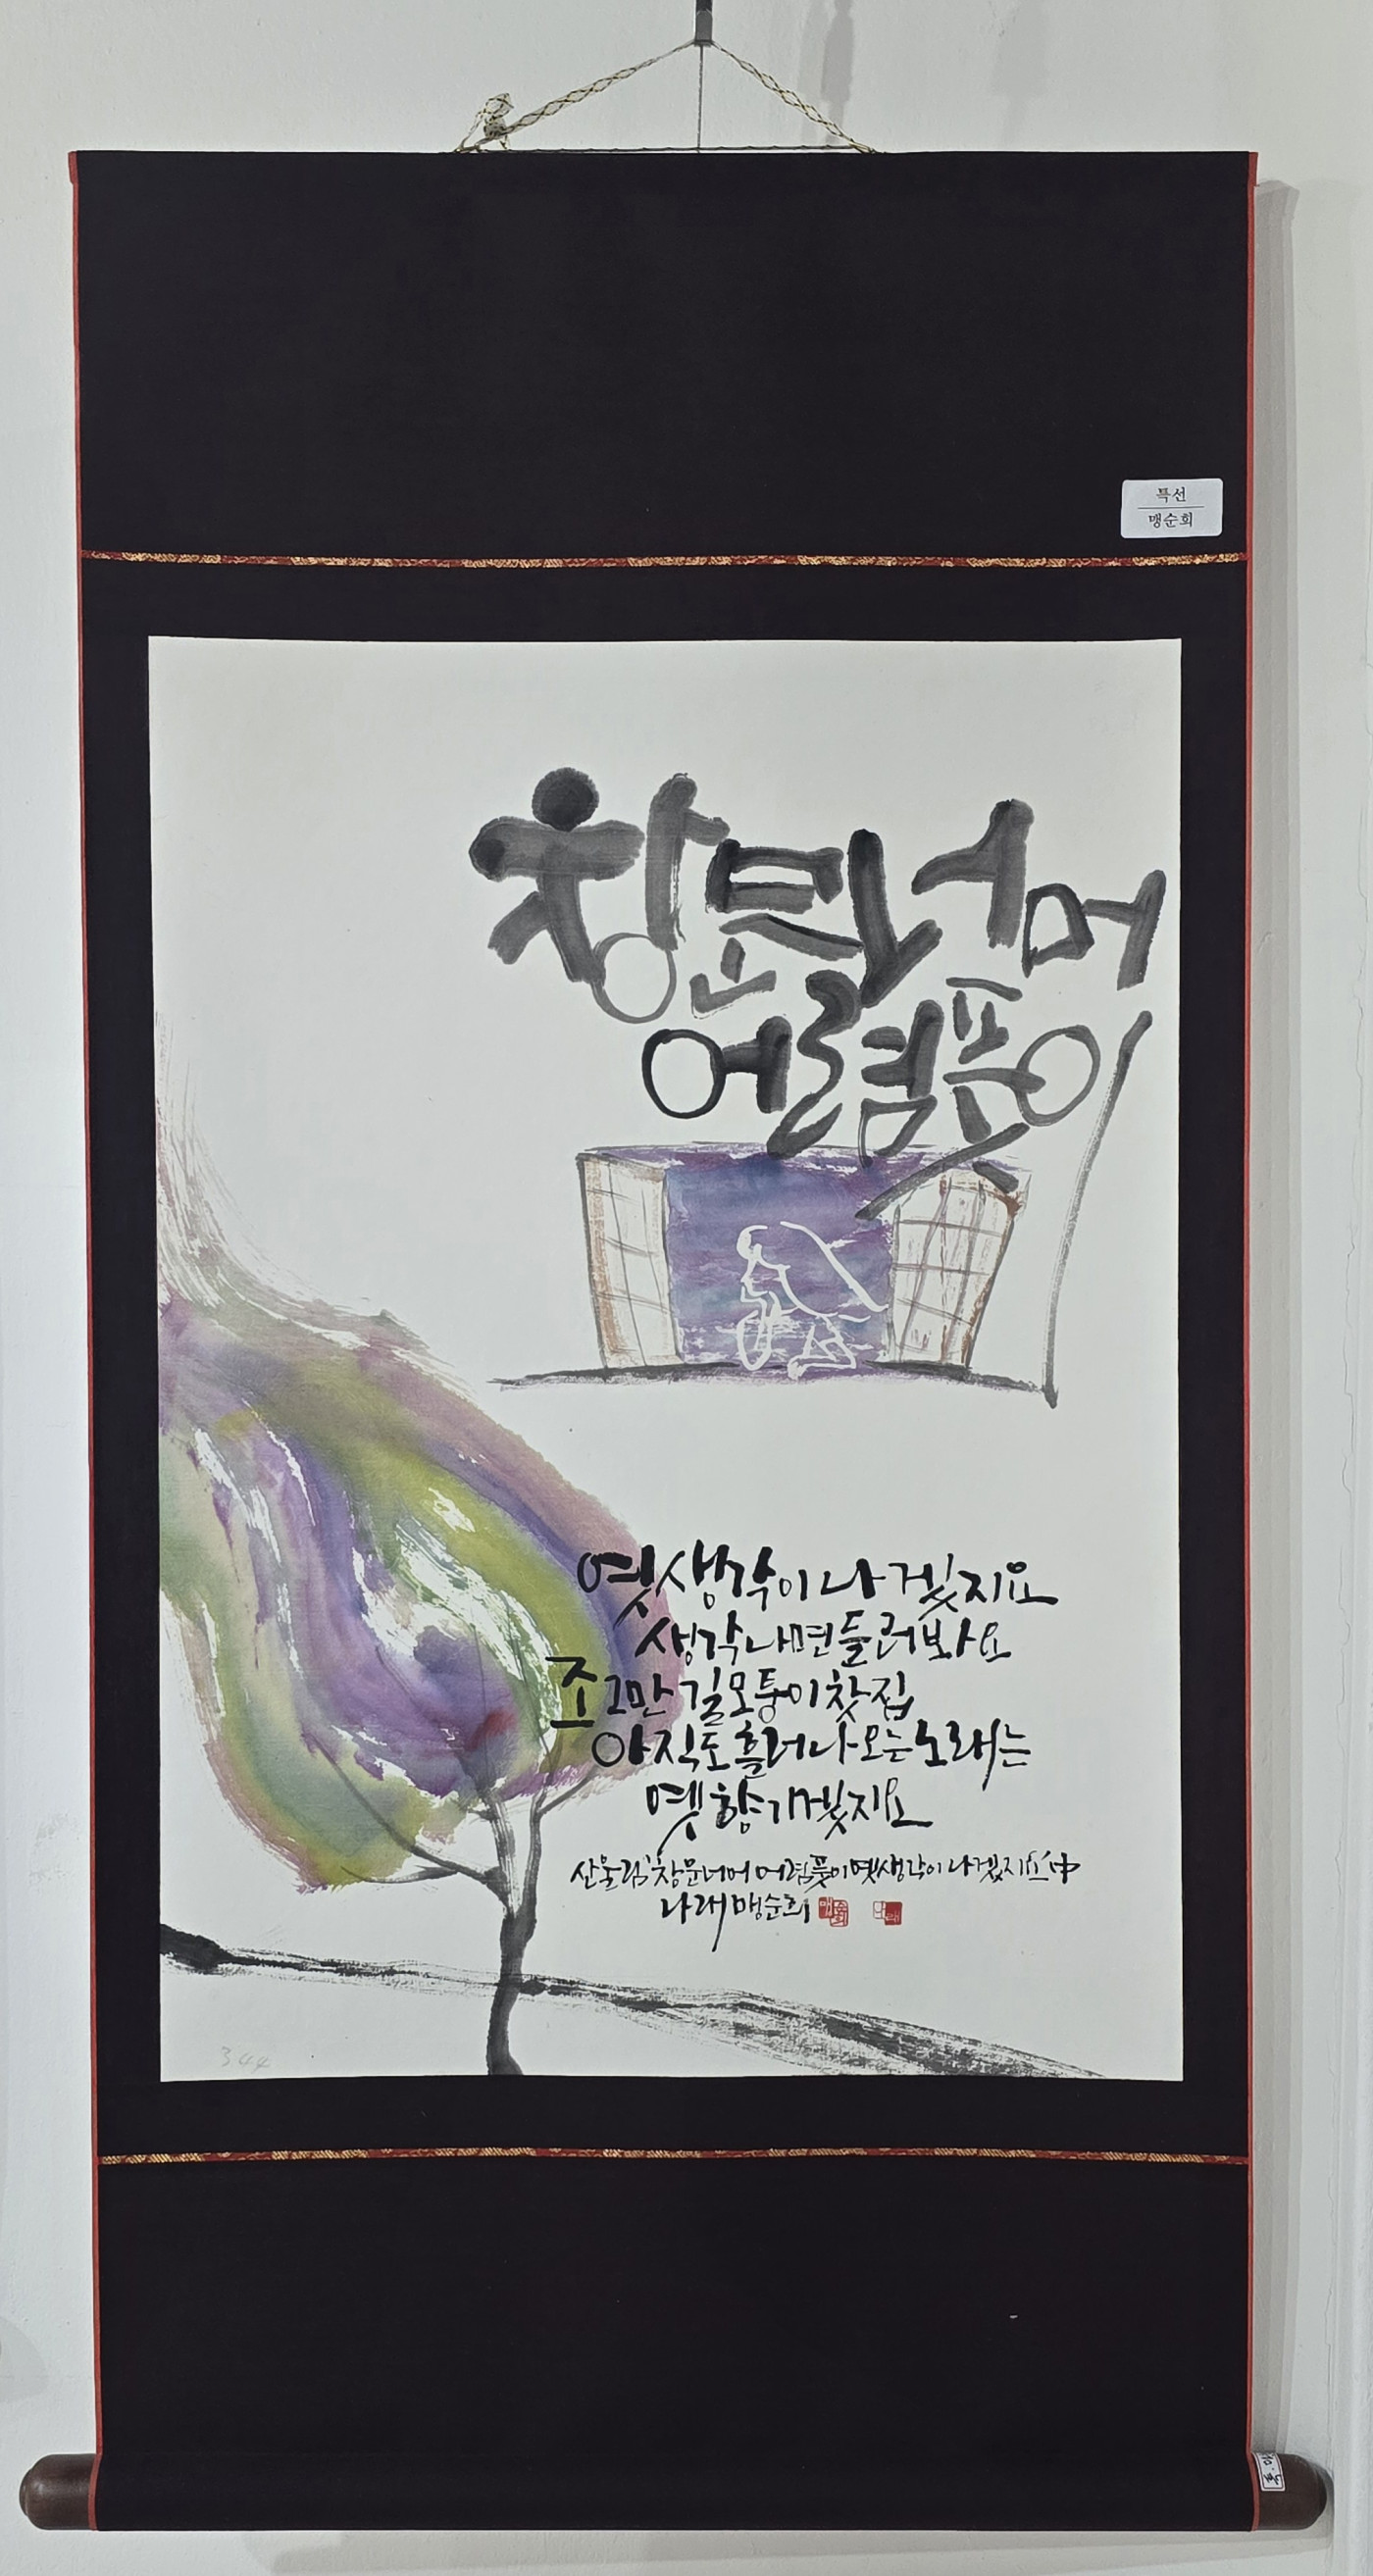 특선
맹순희
창문너머
어렴풋이
옛생각이나겠지요
생각나면들러봐요
조그만길모퉁이찻집
아직도흘러나오는노래는
옛향기겠지요
산울림'창문너머어렴풋이옛생각이나겠지요'中
나래맹순희
맹순희
나래
344